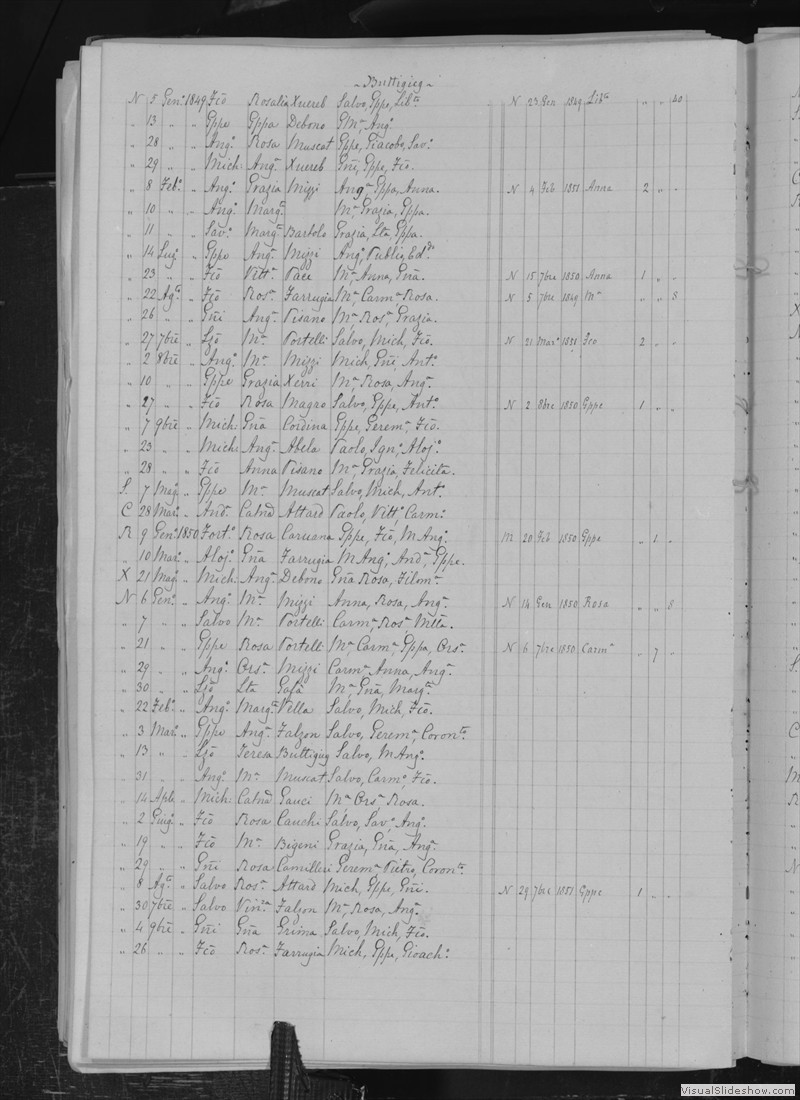 ~Buttigieg~
N 5 Gen.º 1849 Fcõ Rosalia Xuereb Salvo, Gppe, Libª N 23 Gen 1849 Libª " " 40
" 13 " " Gppe Gppa Debono GMª, Angº
" 28 " " Angº Rosa Muscat Gppe, Giacobo, Savº
" 29 " " Mich: Angª Xuereb Gñi, Gppe, Fcõ.
" 8 Febº " Angº Grazia Mizzi Angª, Gppa, Anna. N 4 Feb 1851 Anna 2 " "
" 10 " " Angº Margª Mª, Grazia, Gppa.
" 11 " " Savº Margª Bartolo Grazia, Lta, Gppa.
" 14 Lugº " Gppe Angª Mizzi Angº, Publio, Edº
" 23 " " Fcõ Vittª Pace Mª, Anna, Gña. N 15 7bre 1850 Anna 1 " "
" 22 Agº " Fcõ Rosª Farrugia Mª, Carmª Rosa. N 5 7bre 1849 Mª " " 8
" 26 " " Gñi Angª Pisano Mª, Rosª, Grazia.
" 27 7bre " Lzõ Mª Portelli Salvo, Mich, Fcõ. N 21 Marº 1851 Fco 2 " "
" 2 8bre " Angº Mª Mizzi Mich, Gñi, Antº
" 10 " " Gppe Grazia Xerri Mª, Rosa, Angª
" 27 " " Fcõ Rosa Magro Salvo, Gppe, Antº N 2 8bre 1850 Gppe 1 " "
" 7 9bre " Mich: Gña Cordina Gppe, Geremª, Fcõ.
" 23 " " Mich: Angª Abela Paolo, Ignº, Alojº
" 28 " " Fcõ Anna Pisano Mª, Grazia, Felicita.
S. 7 Magº " Gppe Mª Muscat Salvo, Mich, Antº
C 28 Marº " Andª Catnã Attard Paolo, Vittº, Carmº
R 9 Genº 1850 Fortº Rosa Caruana Gppe, Fcõ, M Angº M 20 Feb 1850 Gppe " 1 "
" 10 Marº " Alojº Gña Farrugia M Angº, Andª, Gppe.
X 21 Magº " Mich: Angª Debono Gña Rosa, Filomª
N 6 Genº " Angº Mª Mizzi Anna, Rosa, Angª N 14 Gen 1850 Rosa " " 8
" 7 " " Salvo Mª Portelli Carmª Rosª
" 21 " " Gppe Rosa Portelli Mª Carmª, Gppa, Orsª N 6 7bre 1850 Carmª " 7 "
" 29 " " Angº Orsª Mizzi Carmª Anna, Angª
" 30 " " Lzõ Lta Gafa Mª, Gña, Margª
" 22 Febº " Angº Margª Vella Salvo, Mich, Fcõ.
" 3 Marº " Gppe Angª Falzon Salvo, Geremª, Coronª
" 13 " " Lzõ Teresa Buttigieg Salvo, M Angº
" 31 " " Angº Mª Muscat Salvo, Carmº, Fcõ.
" 14 Aple " Mich: Catnã Gauci Mª Orsª Rosa.
" 2 Giugº " Fcõ Rosa Cauchi Salvo, Savº, Angº
" 19 " " Fcõ Mª Bigeni Grazia, Gña, Angª
" 29 " " Gñi Rosa Camilleri Geremª Pietro, Coronª
" 8 Agº " Salvo Rosª Attard Mich, Gppe, Gñi. N 29 7bre 1851 Gppe 1 " "
" 30 7bre " Salvo Vinzª Falzon Mª, Rosa, Angª
" 4 9bre " Gñi Gña Grima Salvo, Mich, Fcõ.
" 26 " " Fcõ Rosª Farrugia Mich, Gppe, Gioachº
VisualSlideshow.com